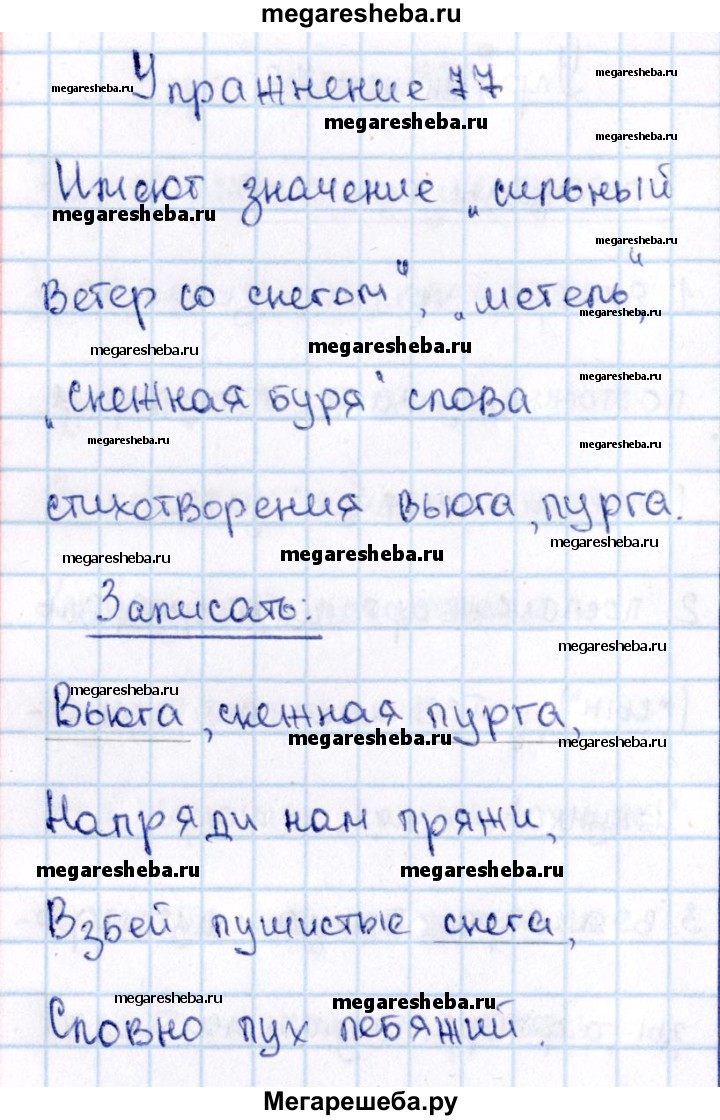 megaresheba.ru
Упражнение 77
megaresheba.ru
megaresheba.ru
megaresheba.ru
megaresheba.ru
Имеют значение „сильный
megaresheba.ru
megaresheba.ru
megaresheba.ru
ветер со снегом“, „метель“,
megaresheba.ru
megaresheba.ru
megaresheba.ru
„снежная буря“ слова
megaresheba.ru
megaresheba.ru
стихотворения вьюга, пурга.
megaresheba.ru
megaresheba.ru
megaresheba.ru
Записать:
megaresheba.ru
megaresheba.ru
Вьюга, снежная пурга,
megaresheba.ru
megaresheba.ru
Напряди нам пряжи,
megaresheba.ru
megaresheba.ru
Взбей пушистые снега,
megaresheba.ru
megaresheba.ru
Словно пух лебяжий.
Мегарешеба.ру